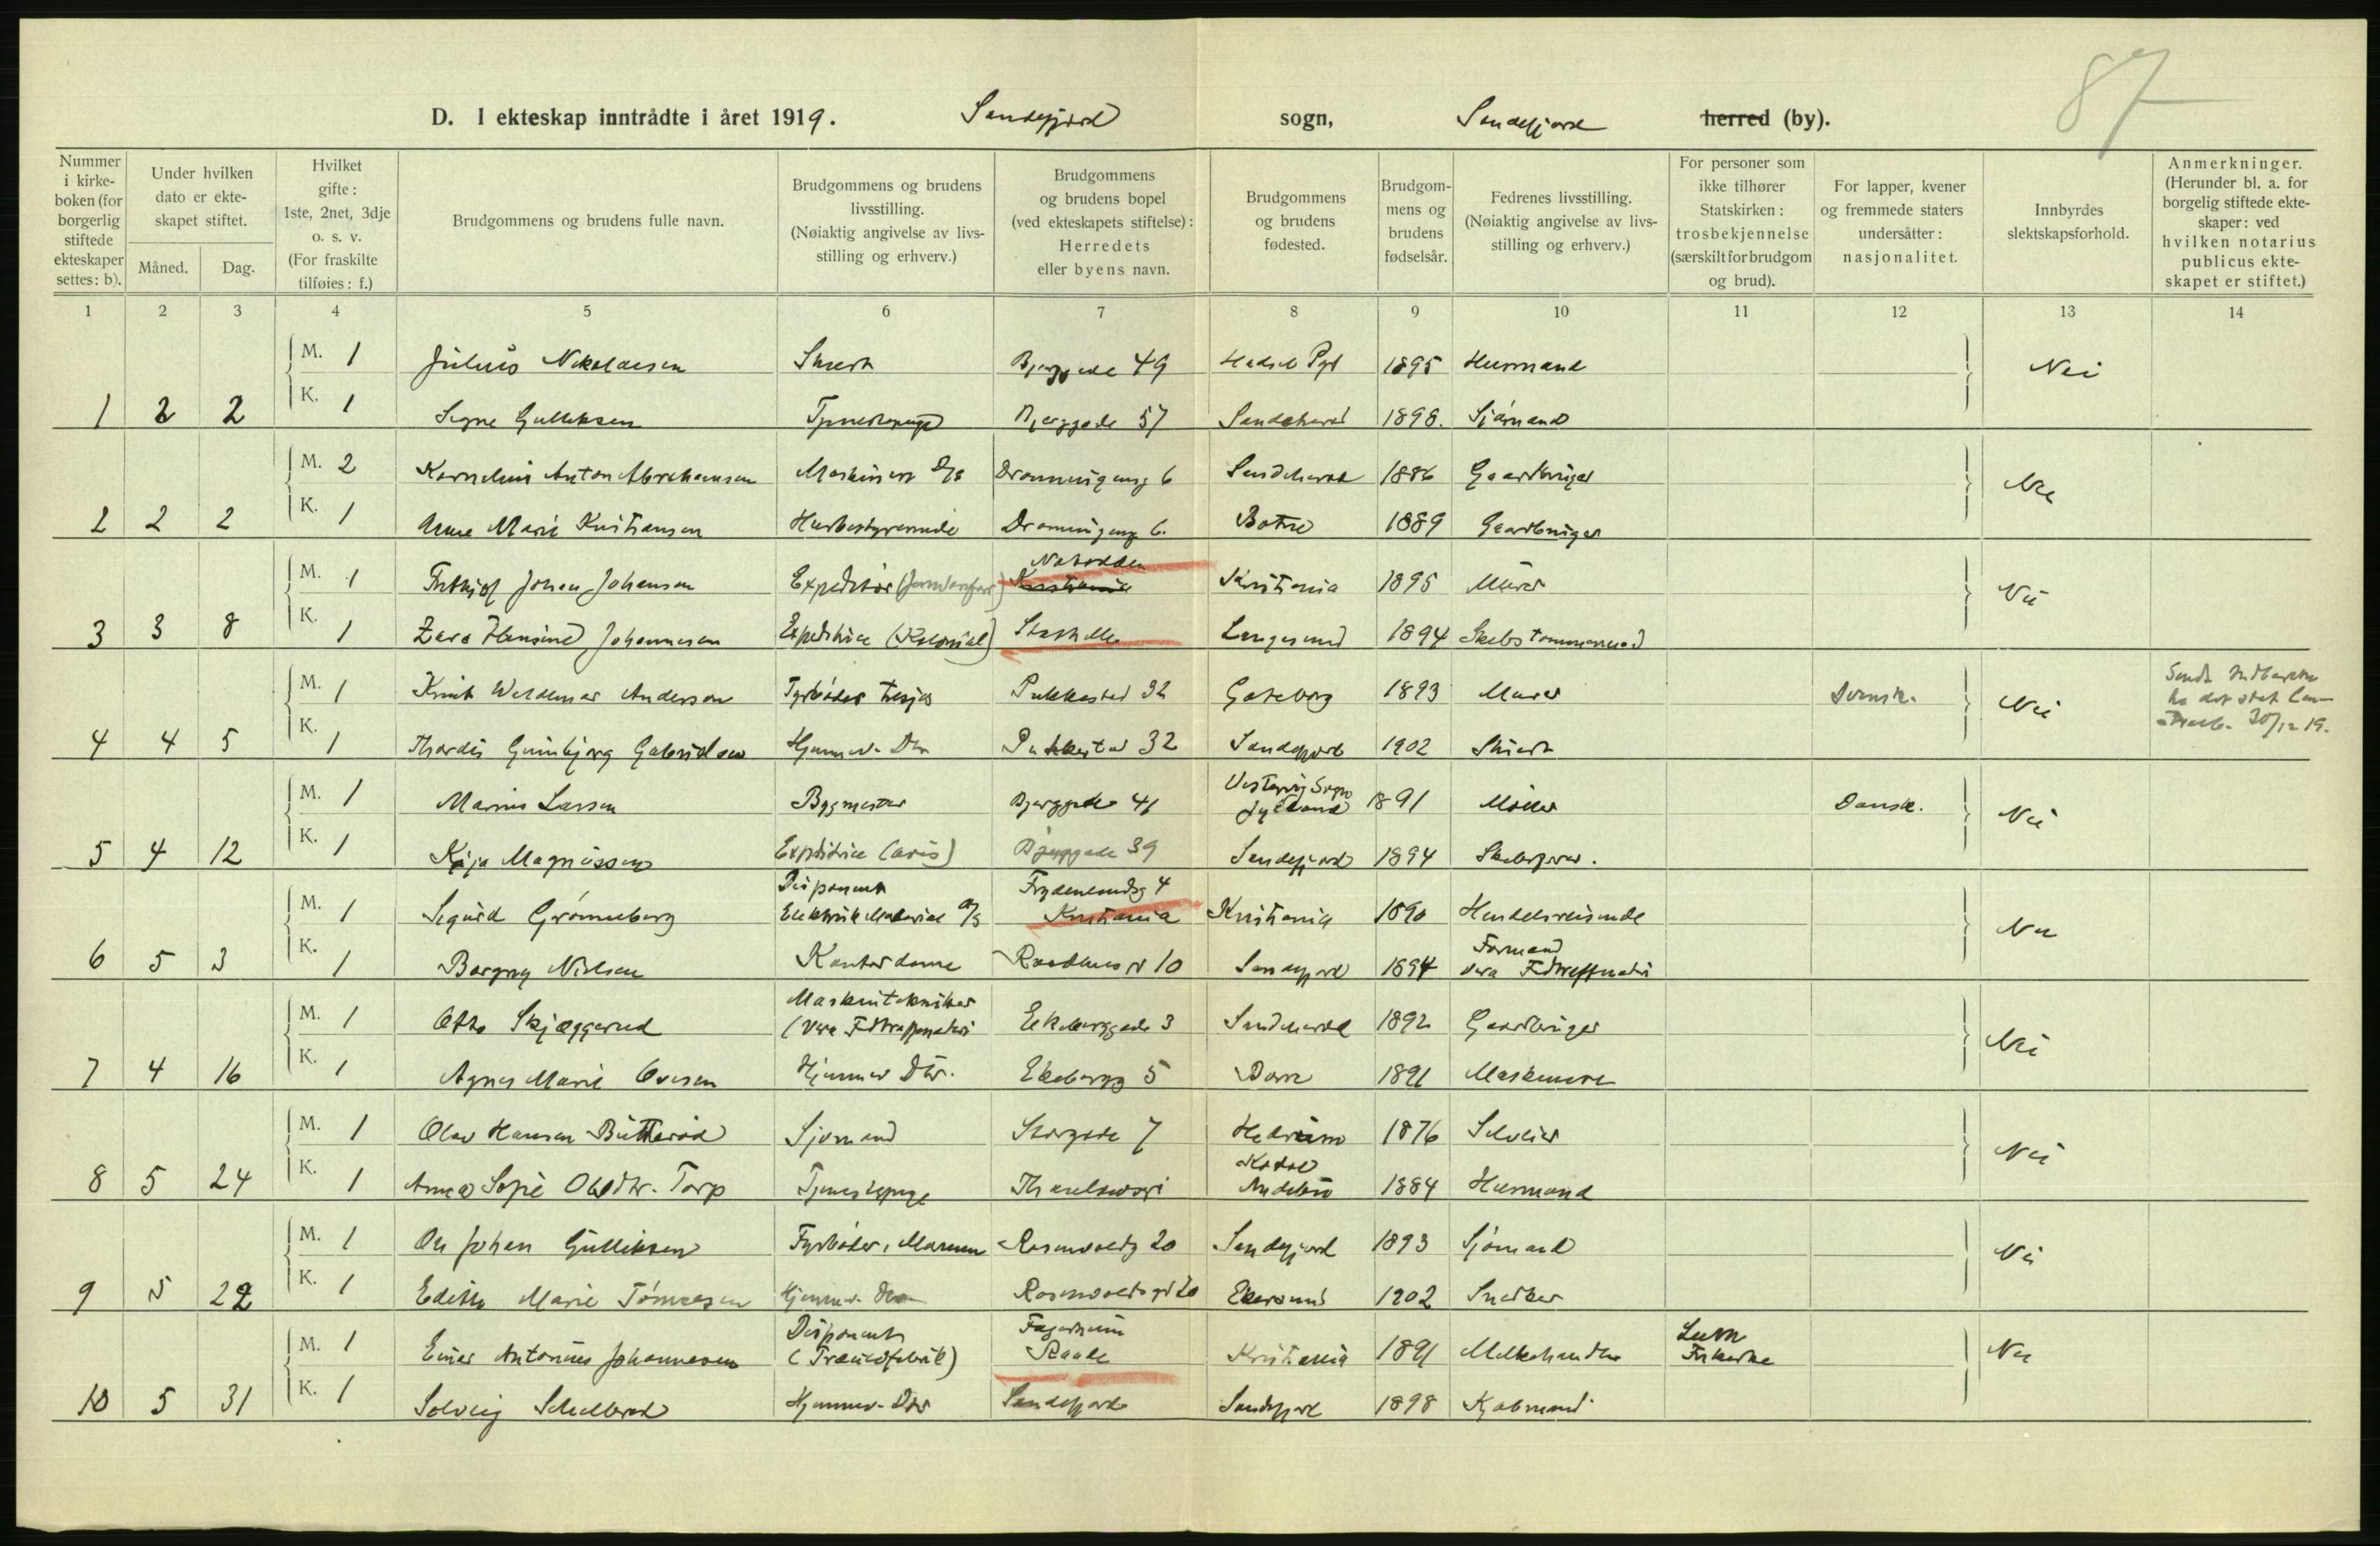 87
D. I ekteskap inntrådte i året 1919. Sandefjord sogn, Sandefjord herred (by).
Nummer i kirke- boken (for borgerlig stiftede ekteskaper settes: b).
Under hvilken dato er ekte- skapet stiftet.
Måned. Dag.
Hvilket gifte: 1ste, 2net, 3dje o. s. v. (For fraskilte tilføies: f.)
Brudgommens og brudens fulle navn.
Brudgommens og brudens livsstilling. (Nøiaktig angivelse av livs- stilling og erhverv.)
Brudgommens og brudens bopel (ved ekteskapets stiftelse): Herredets eller byens navn.
Brudgommens og brudens fødested.
Brudgom- mens og brudens fødselsår.
Fedrenes livsstilling. (Nøiaktig angivelse av livs- stilling og erhverv.)
For personer som ikke tilhører Statskirken: trosbekjennelse (særskilt for brudgom og brud).
For lapper, kvener og fremmede staters undersåtter: nasjonalitet.
Innbyrdes slektskapsforhold.
Anmerkninger. (Herunder bl. a. for borgelig stiftede ekte- skaper: ved hvilken notarius publicus ekte- skapet er stiftet.)
1 2 3 4 5 6 7 8 9 10 11 12 13 14
M. 1 Julius Nikolaisen Bjerggade 49 1895 Husmand Nei
1 2 2 K. 1 Signe Gulliksen Tjenestepige Bjerggade 57 Sandeherred 1898. Sjømand
M. 2 Kornelius Anton Abrahamsen Maskinist Dronningensg 6 Sandeherred 1886 Gaardbruger Nei
2 2 2 K. 1 Anne Marie Kristiansen Husbestyrerinde Dronningensg 6. Botne 1889 Gaardbruger
Notodden
M. 1 Frithjof Johan Johansen Expeditør Kristiania Kristiania 1895 Murer Nei
3 3 8 K. 1 Zara Hansine Johannesen Expeditrice (Kolonial) Stathelle Langesund 1894 Skibstømmermand
M. 1 Knut Waldemar Anderson Fyrbøder Pukkestad 32 Gøteborg 1893 Murer Svensk. Nei
30/12 19.
4 4 5 K. 1 Thordis Gunbjørg Gabrielsen Hjemmev. Dtr Pukkestad 32 Sandefjord 1902
Vestervig Sogn
M. 1 Marius Larsen Bygmester Bjerggade 41 Jylland 1891 Møller Dansk. Nei
5 4 12 K. 1 Kaja Magnussen Expeditrice (avis) Bjerggade 39 Sandefjord 1894
Disponent Frydenlundsg 4
M. 1 Sigurd Grønneberg Elektrisk Material A/S Kristiania Kristiania 1890 Handelsreisende Nei
Formand
6 5 3 K. 1 Borgny Nielsen Kontordame Raadhusg 10 Sandefjord 1894 Vera Fedtraffinaderi
Maskintekniker
M. 1 Otto Skjæggerud (Vera Fedtraffinaderi Ekeberggade 3 Sandeherred 1892 Gaardbruger Nei
7 4 16 K. 1 Agnes Marie Evensen Hjemmev Dtr. Ekebergg 5 Borre 1891 Maskinist
M. 1 Olav Hansen Butterød Sjømand Storgade 7 Hedrum 1876 Selveier Nei
Kodal
8 5 24 K. 1 Anna Sofie Olsdtr. Torp Tjenestepige Andebu 1884 Husmand
M. 1 Ole Johan Gulliksen Fyrbøder, Marinen Rosenvoldsg 20 Sandefjord 1893 Sjømand Nei
9 5 22 K. 1 Edith Marie Tønnesen Hjemmev. Dtr Rosenvoldsgd 20 Ekersund 1902 Snedker
Disponent Fagerheim Luth
M. 1 Einar Antonius Johannesen (Træuldfabrik) Raade Kristiania 1891 Melkehandler Frikirke Nei
10 5 31 K. 1 Solveig Schellerød Hjemmev. Dtr Sandefjord Sandefjord 1898 Kjøbmand